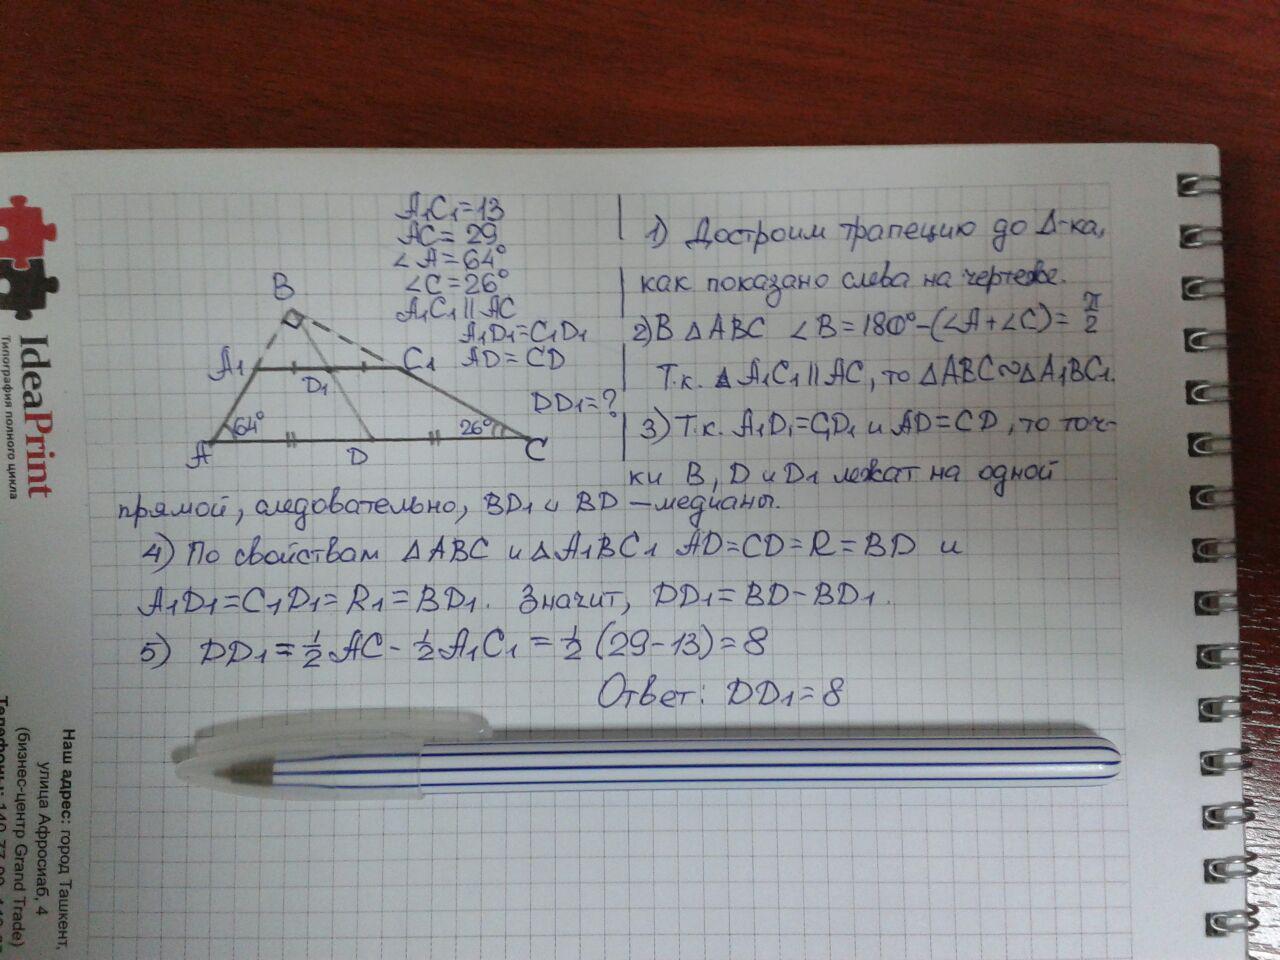 A₁C₁=13
AC=29
∠A=64°
∠C=26°
A₁C₁ || AC
A₁D₁=C₁D₁
AD=CD
DD₁=?
B
A₁
C₁
D₁
64°
26°
A
D
C
1) Достроим трапецию до Δ-ка,
как показано слева на чертеже.
2) В ΔABC ∠B=180°-(∠A+∠C)=π/2
Т.к. A₁C₁ || AC, то ΔABC∾ΔA₁BC₁.
3) Т.к. A₁D₁=C₁D₁ и AD=CD, то точ-
ки B, D и D₁ лежат на одной
прямой, следовательно, BD₁ и BD – медианы.
4) По свойствам ΔABC и ΔA₁BC₁ AD=CD=R=BD и
A₁D₁=C₁D₁=R₁=BD₁. Значит, DD₁=BD-BD₁.
5) DD₁=½AC-½A₁C₁=½(29-13)=8
Ответ: DD₁=8
IdeaPrint
Типография полного цикла
Наш адрес: город Ташкент,
улица Афросиаб, 4
(бизнес-центр Grand Trade)